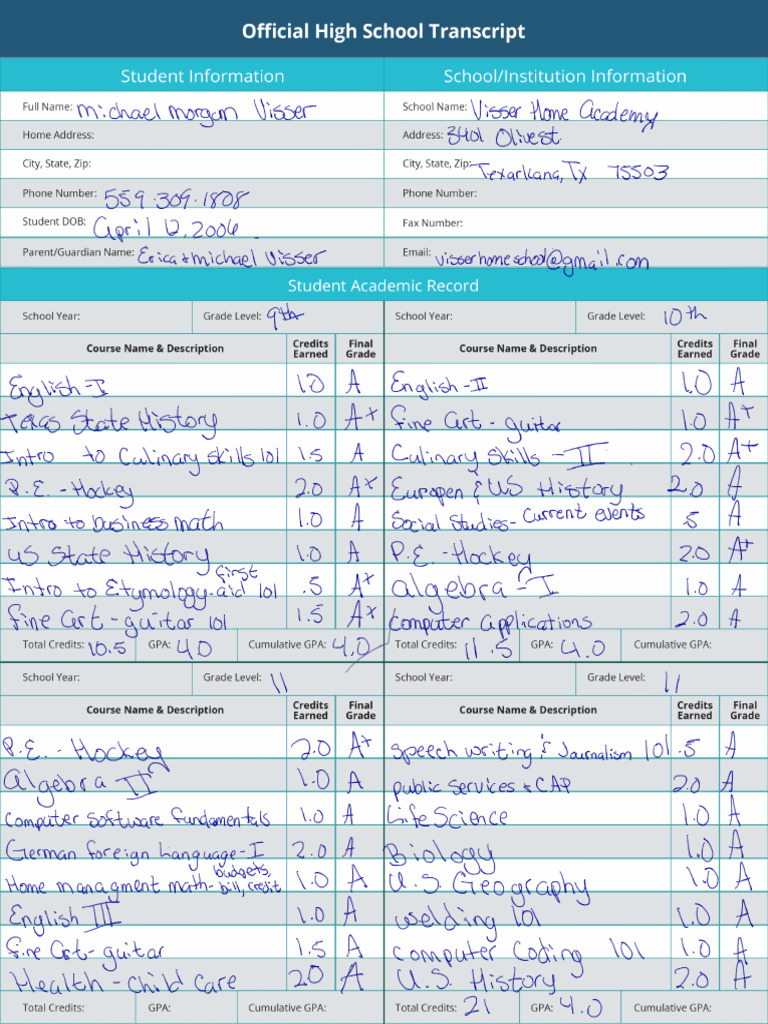 Official High School Transcript
Student Information
School/Institution Information
Full Name: Michael Morgan Visser
School Name: Visser Home Academy
Home Address:
Address: 3401 Olive st.
City, State, Zip:
City, State, Zip: Texarkana, TX 75503
Phone Number: 559.309.1808
Phone Number:
Student DOB: April 12, 2006
Fax Number:
Parent/Guardian Name: Erica + michael Visser
Email: visserhomeschool@gmail.com
Student Academic Record
School Year: Grade Level: 9th
School Year: Grade Level: 10th
Course Name & Description Credits Earned Final Grade
English-I 1.0 A
Texas State History 1.0 A+
Intro to Culinary skills 101 1.5 A
P.E. - Hockey 2.0 A+
Intro to business math 1.0 A
US State History 1.0 A
Intro to Etymology-first aid 101 .5 A+
fine Art - guitar 101 1.5 A+
Total Credits: 10.5 GPA: 4.0 Cumulative GPA: 4.0
Course Name & Description Credits Earned Final Grade
English-II 1.0 A
fine Art - guitar 1.0 A+
Culinary Skills - II 2.0 A+
Europen & US History 2.0 A
Social Studies- Current events .5 A
P.E. - Hockey 2.0 A+
algebra - I 1.0 A
Computer Applications 2.0 A
Total Credits: 11.5 GPA: 4.0 Cumulative GPA:
School Year: Grade Level: 11
School Year: Grade Level: 11
Course Name & Description Credits Earned Final Grade
P.E. - Hockey 2.0 A+
Algebra II 1.0 A
Computer Software fundamentals 1.0 A
German foreign Language-I 2.0 A
Home managment math- budgets, bill, credit 1.0 A
English III 1.0 A
fine Art- guitar 1.5 A
Health - Child Care 2.0 A
Total Credits: GPA: Cumulative GPA:
Course Name & Description Credits Earned Final Grade
speech writing & Journalism 101 .5 A
public Services + CAP 2.0 A
Life Science 1.0 A
Biology 1.0 A
U.S. Geography 1.0 A
welding 101 1.0 A
computer Coding 101 1.0 A
U.S. History 2.0 A
Total Credits: 21 GPA: 4.0 Cumulative GPA: